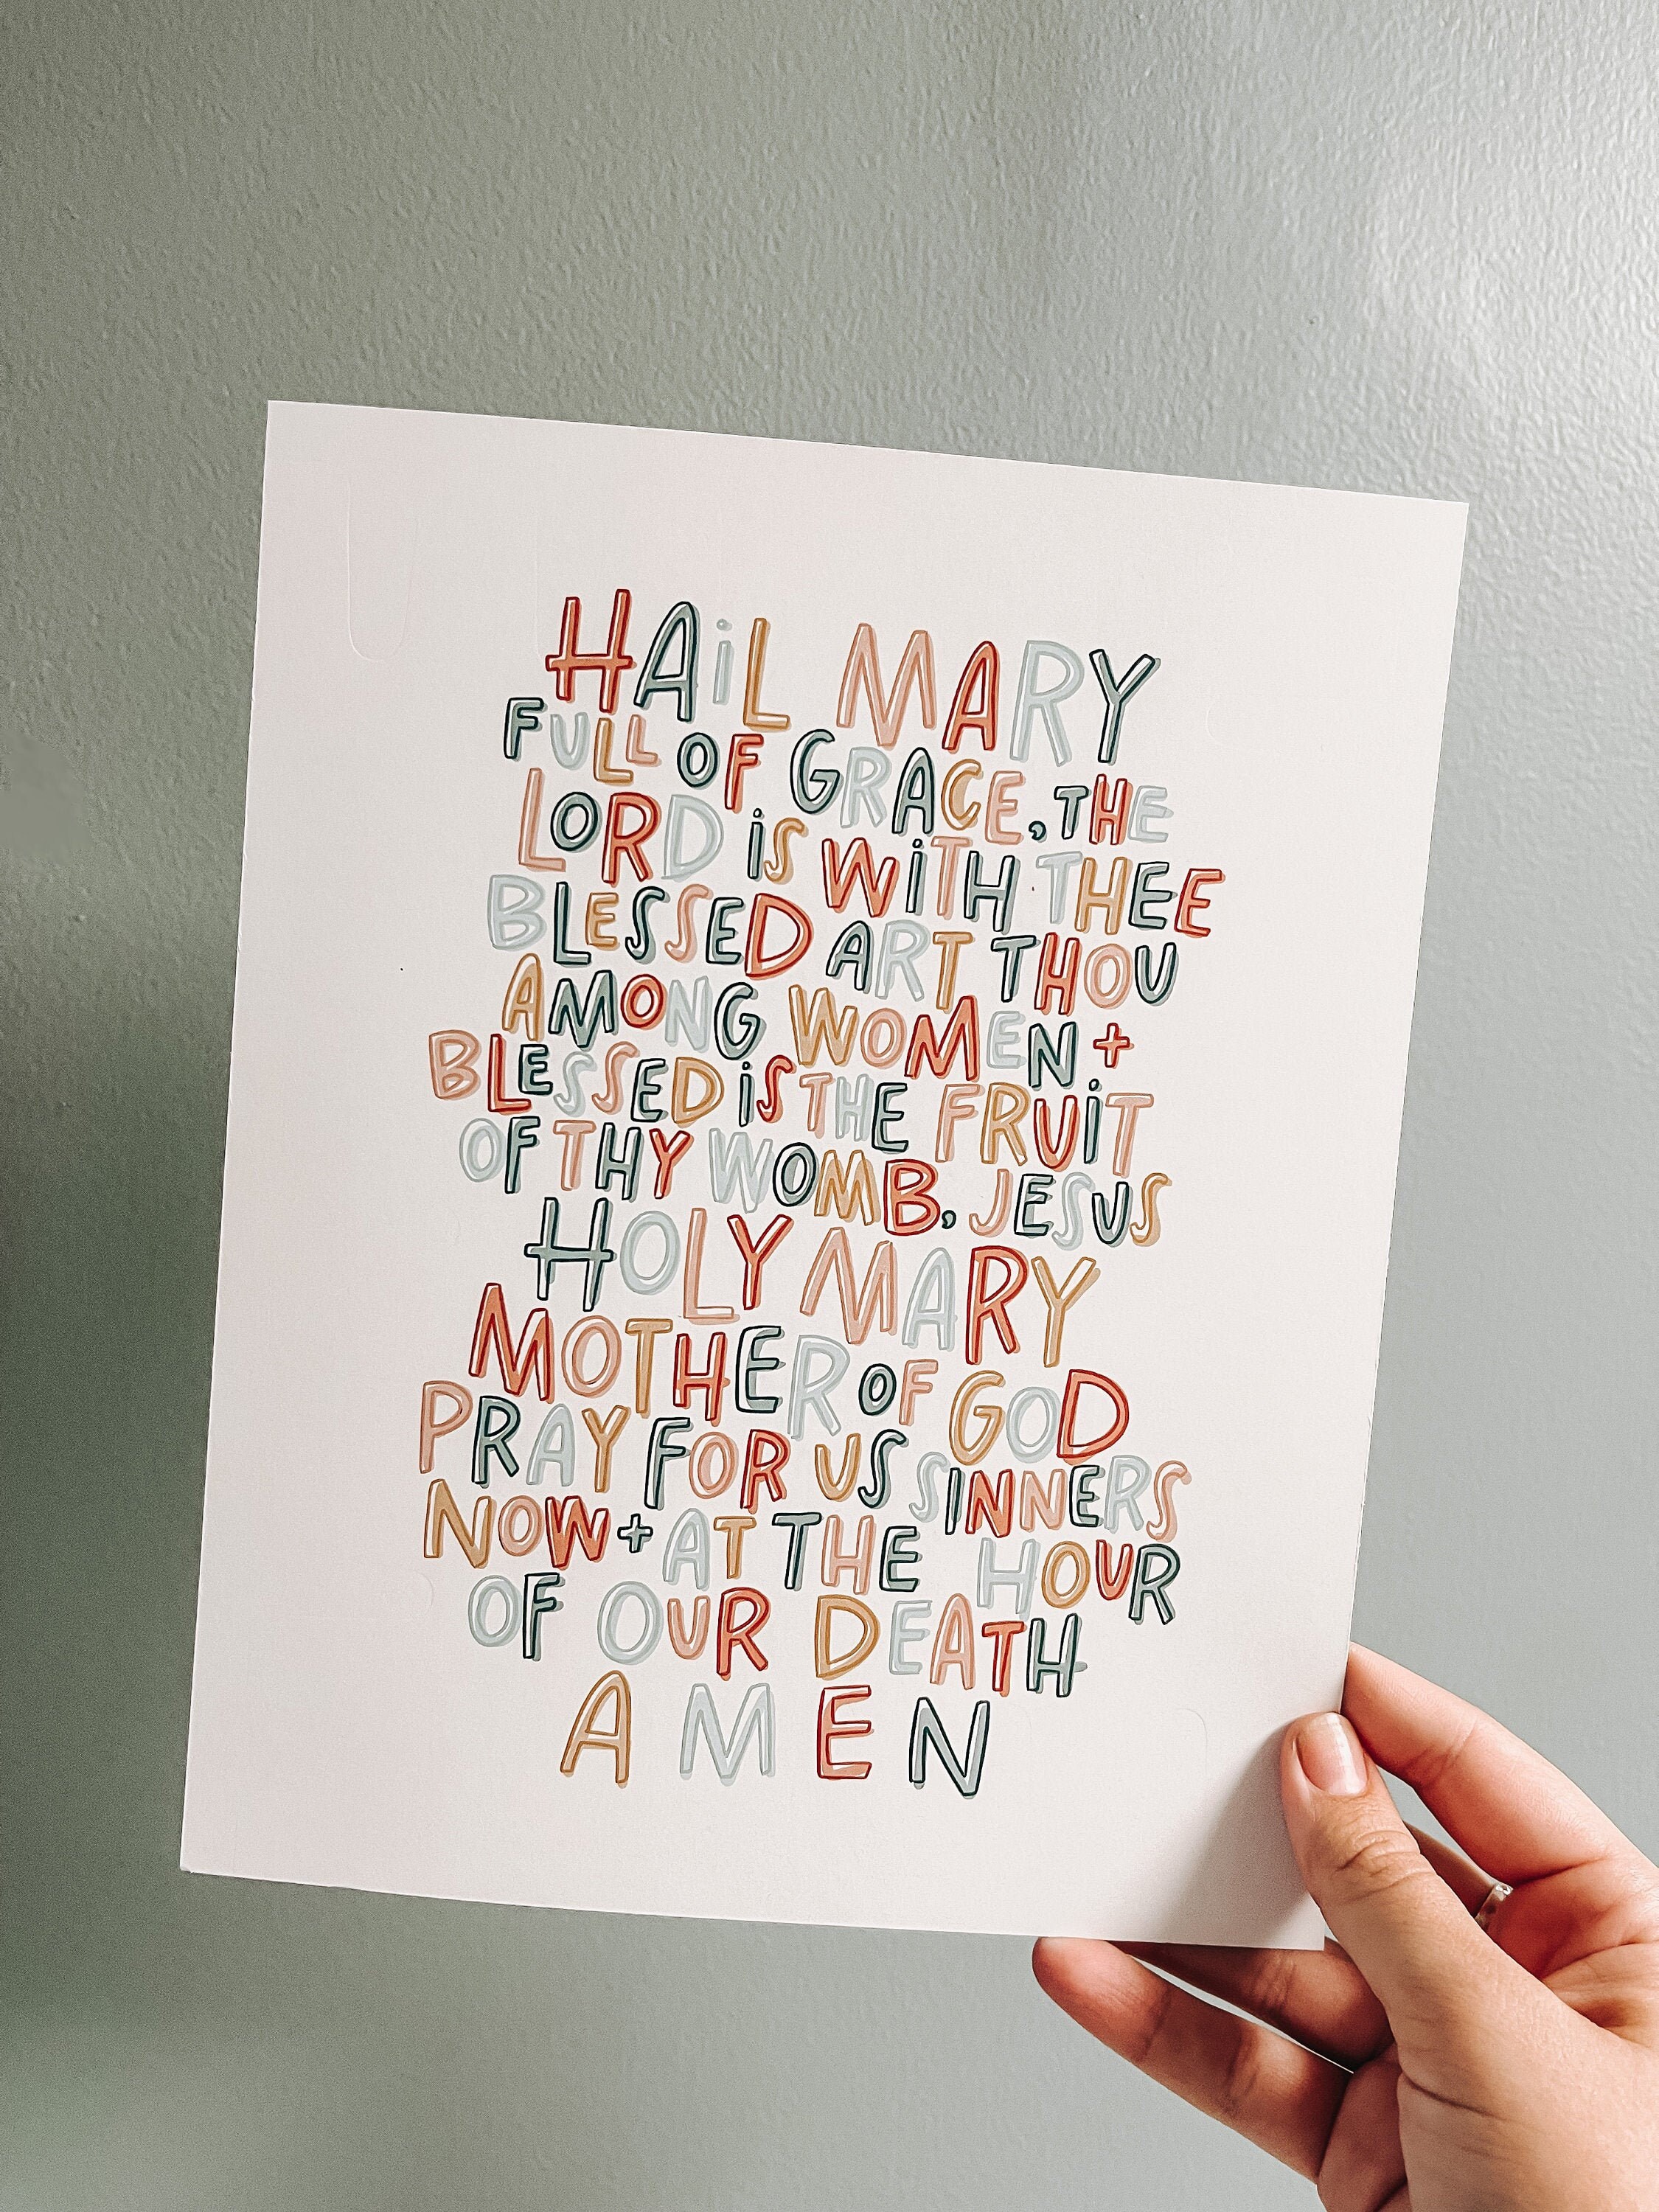 HAiL MARY
FULL OF GRACE, THE
LORD iS WiTH THEE
BLESSED ART THOU
AMONG WOMEN +
BLESSED iS THE FRUiT
OF THY WOMB, JESUS
HOLY MARY
MOTHER OF GOD
PRAY FOR US SINNERS
NOW + AT THE HOUR
OF OUR DEATH
AMEN